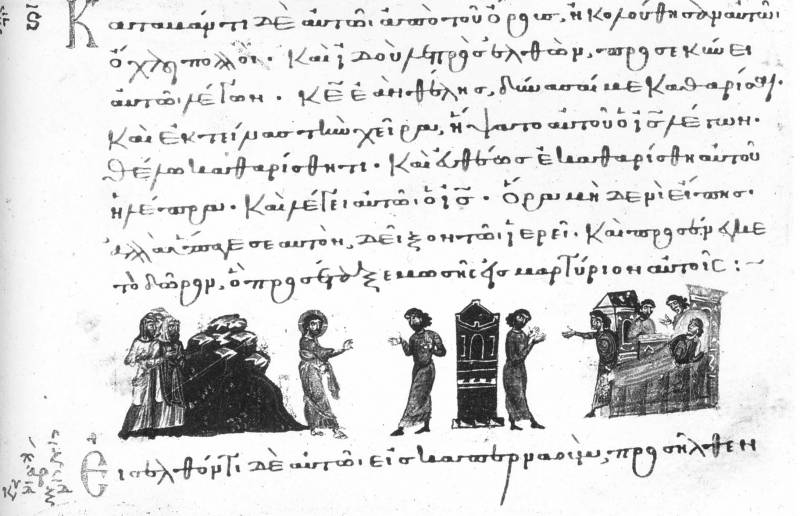 Καταβάντι δὲ αὐτῶι ἀπὸ τοῦ ὄρους, ἠκολούθησαν αὐτῶι
ὄχλοι πολλοί· Καὶ ἰδοὺ λεπρὸς ἐλθὼν, προσεκύνει
αὐτῶι λέγων· Κ̅Ε̅ ἐὰν θέλης, δύνασαί με καθαρίσαι·
Καὶ ἐκτείνας τὴν χεῖρα, ἥψατο αὐτοῦ ὁ ι̅ς̅ λέγων·
θέλω καθαρίσθητι· Καὶ εὐθέως ἐκαθαρίσθη αὐτοῦ
ἡ λέπρα· Καὶ λέγει αὐτῶι ὁ ι̅ς̅· Ὅρα μηδενὶ εἴπης·
ἀλλὰ ὕπαγε σεαυτὸν, δεῖξον τῶι ἱερεῖ· Καὶ προσένεγκε
τὸ δῶρον, ὃ προσέταξε μωσῆς εἰς μαρτύριον αὐτοῖς :~
Εἰσελθόντι δὲ αὐτῶι εἰς καπερναοὺμ, προσῆλθεν